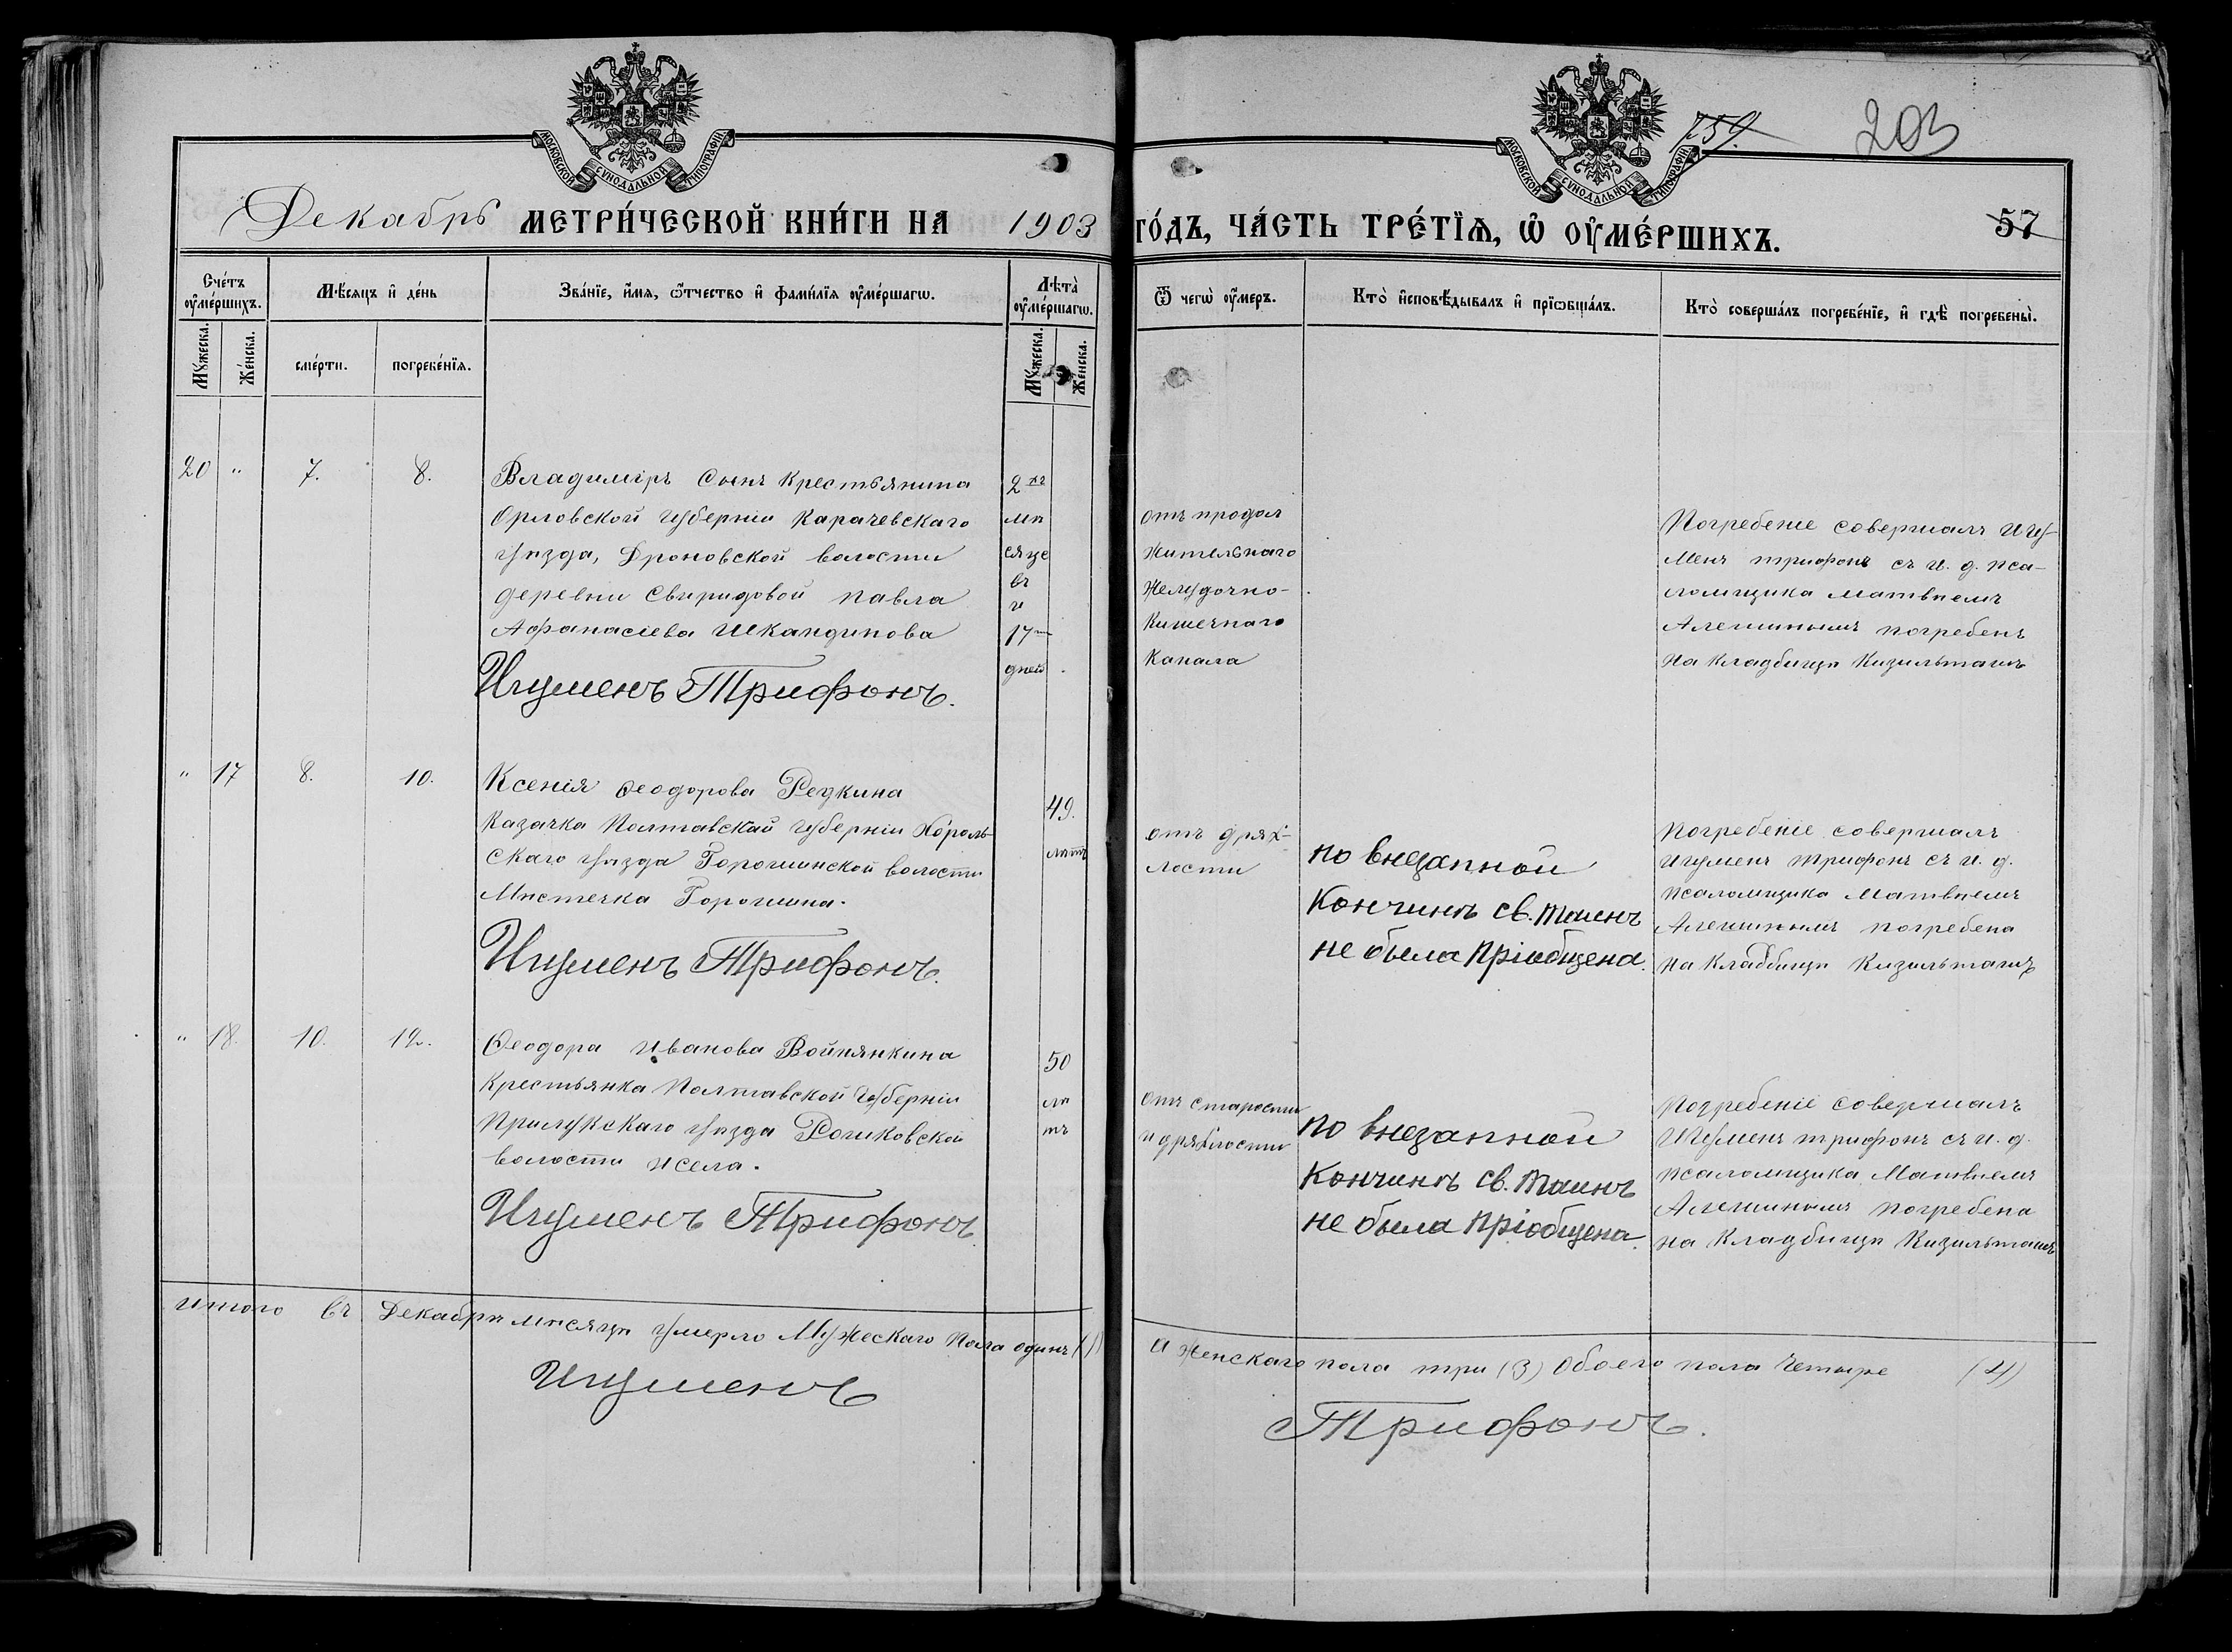 МОСКОВСКОЙ СѴНОДАЛЬНОЙ ТИПОГРАФІИ
МОСКОВСКОЙ СѴНОДАЛЬНОЙ ТИПОГРАФІИ
759.
203
Декабрь МЕТРИ́ЧЕСКОЙ КНИ́ГИ НА 1903 ГО́ДЪ, ЧА́СТЬ ТРЕ́ТЇѦ, Ѡ҆ ОУ҆МЕ́РШИХЪ.
57
Сче́тъ оу҆ме́ршихъ.
Мꙋ́жеска.
Же́нска.
Мѣ́сяцъ и҆ де́нь
сме́рти.
погребе́нїѧ.
Зва́нїе, и҆́мѧ, ѻ҆́тчество и҆ фами́лїѧ оу҆ме́ршагѡ.
Лѣта̀ оу҆ме́ршагѡ.
Мꙋ́жеска.
Же́нска.
Ѿ чегѡ̀ оу҆́меръ.
Кто̀ и҆сповѣ́дывалъ и҆ прїѡбща́лъ.
Кто̀ соверша́лъ погребе́нїе, и҆ гдѣ̀ погребены̀.
20 " 7. 8.
Владиміръ сынъ крестьянина
Орловской губерніи Карачевскаго
уѣзда, Дроновской волости
деревни Свиридовой Павла
Афанасіева Шкандинова
Игуменъ Трифонъ.
2хъ
мѣ
сяце
въ
и
17ти
дней
отъ продол
жительнаго
желудочно-
кишечнаго
канала
Погребеніе совершалъ Игу-
менъ Трифонъ съ и. д. пса-
ломщика Матвѣемъ
Алешинымъ погребенъ
на кладбищѣ Кизильташъ
" 17 8. 10.
Ксенія Ѳеодорова Редкина
Казачка Полтавской губерніи Хороль-
скаго уѣзда Горошинской волости
Мѣстечка Горошина.
Игуменъ Трифонъ.
49.
лѣтъ
отъ дрях-
лости
по внезапной
кончинѣ св. Таинъ
не была пріобщена.
Погребеніе совершалъ
Игуменъ Трифонъ съ и. д.
псаломщика Матвѣемъ
Алешинымъ погребена
на кладбищѣ Кизильташъ
" 18. 10. 12.
Ѳеодора Иванова Войнянкина
крестьянка Полтавской губерніи
Прилукскаго уѣзда Рошковской
волости и села.
Игуменъ Трифонъ.
50
лѣ
тъ
отъ старости
и дряхлости
по внезапной
кончинѣ св. Таинъ
не была пріобщена.
Погребеніе совершалъ
Игуменъ Трифонъ съ и. д.
псаломщика Матвѣемъ
Алешинымъ погребена
на кладбищѣ Кизильташъ
Итого въ Декабрѣ мѣсяцѣ умерло Мужескаго пола одинъ (1)
а женскаго пола три (3) Обоего пола четыре (4)
Игуменъ Трифонъ.